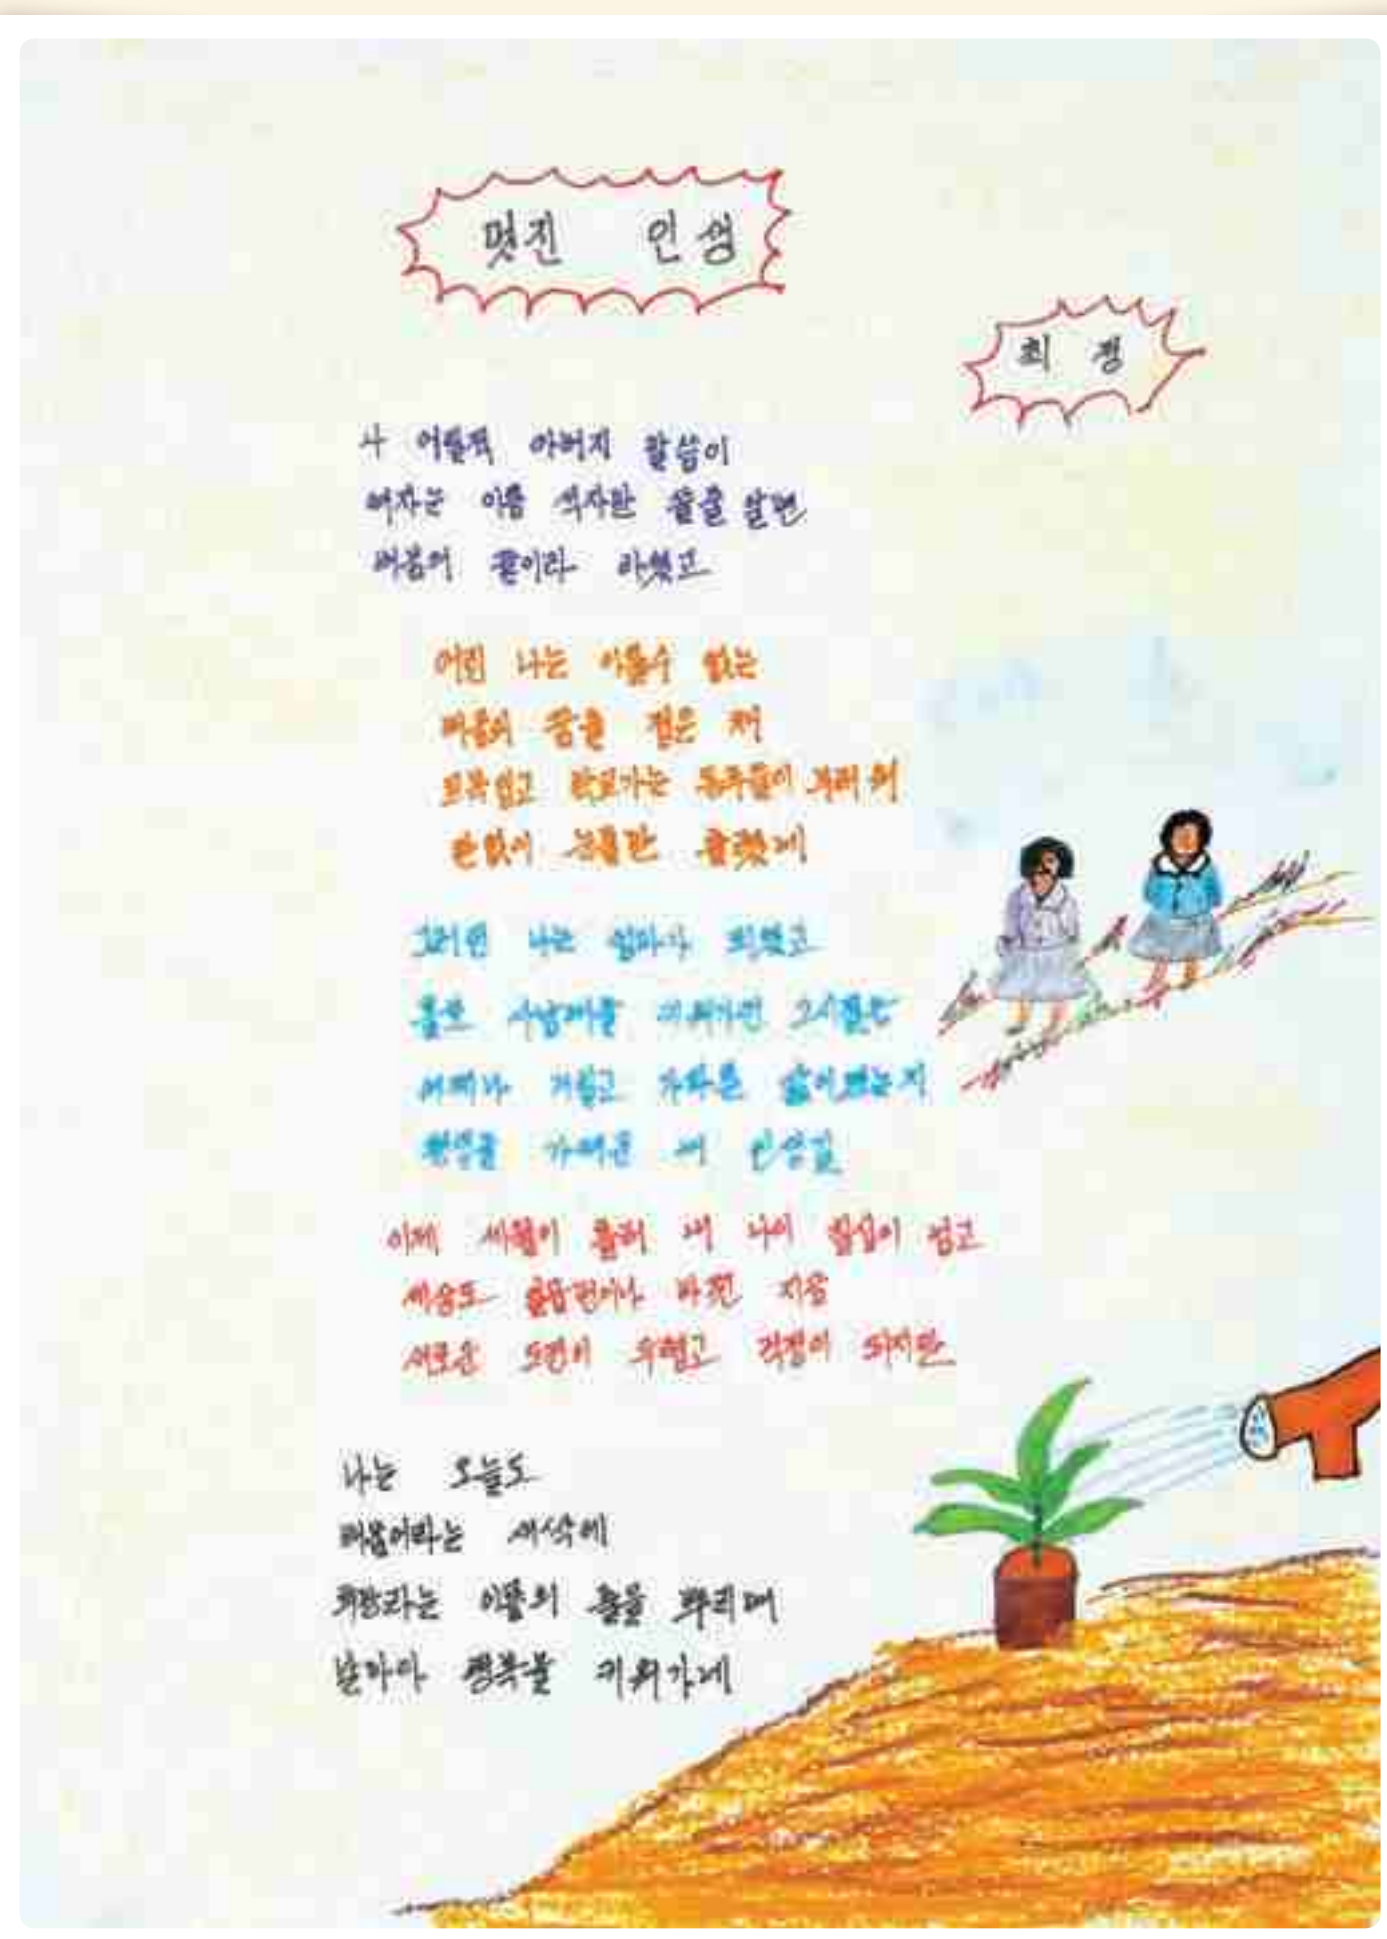 멋진 인생
최 정
나 어릴적 아버지 말씀이
여자는 이름 석자만 쓸줄 알면
배움의 끝이라 하셨고
어린 나는 이룰수 없는
배움의 꿈을 접은 채
교복입고 학교가는 동무들이 부러워
한없이 눈물만 흘렸네
그러던 나는 엄마가 되었고
홀로 사남매를 키워가던 그시절은
어찌나 거칠고 가파른 삶이었는지
한평생을 내 인생길
이제 세월이 흘러 내 나이 칠십이 넘고
세상도 바뀐 지금
새로운 도전이 두렵고 걱정이 되지만
나는 오늘도
배움이라는 새싹에
희망라는 이름의 물을 뿌리며
날마다 행복을 키워가네